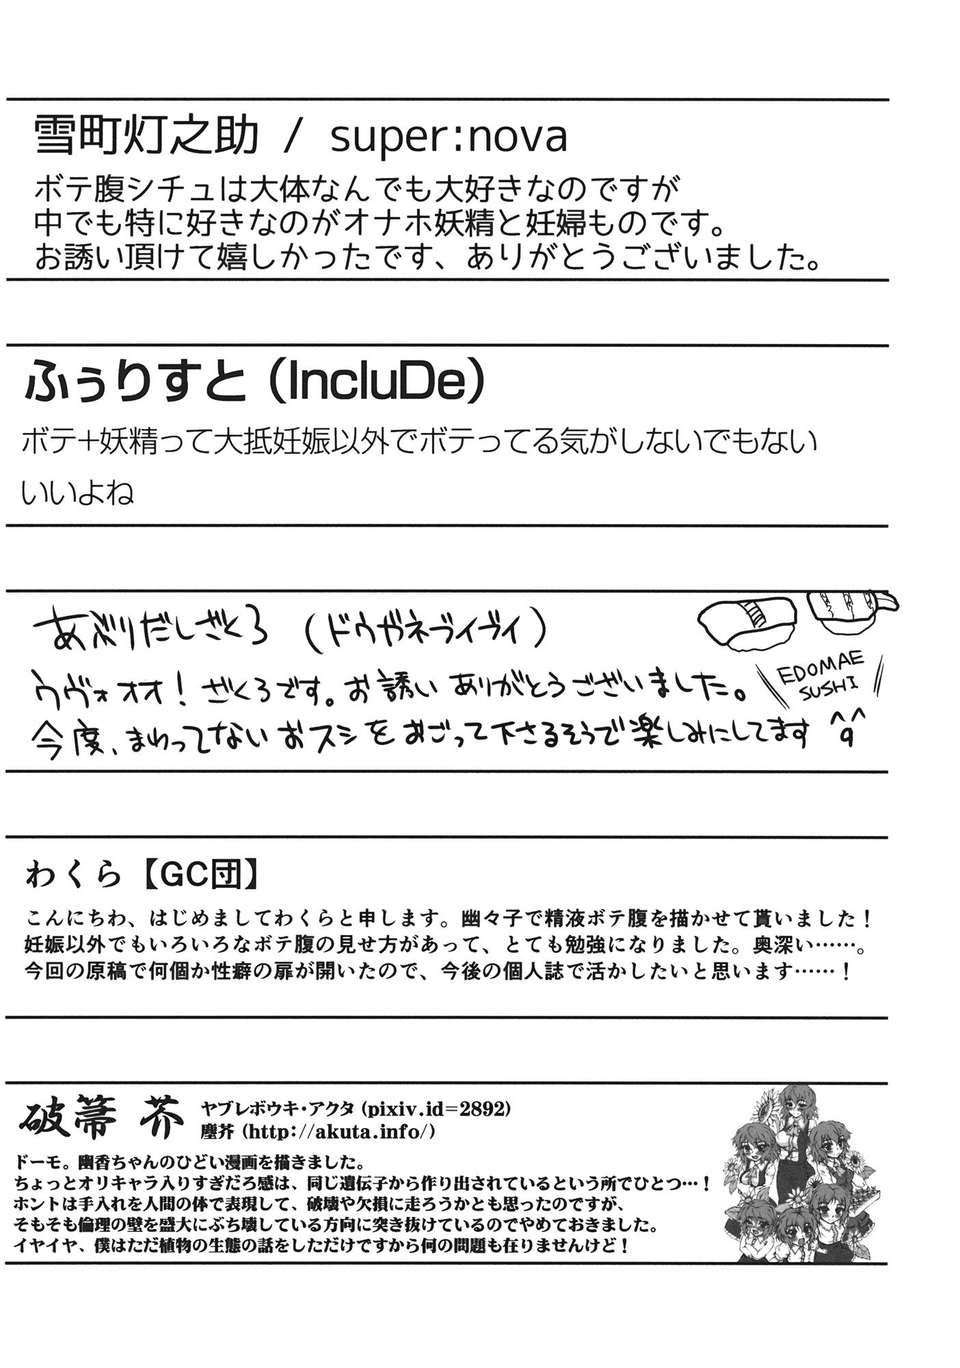 雪町灯之助 / super:nova
ボテ腹シチュは大体なんでも大好きなのですが
中でも特に好きなのがオナホ妖精と妊婦ものです。
お誘い頂けて嬉しかったです、ありがとうございました。
ふぅりすと（IncluDe）
ボテ+妖精って大抵妊娠以外でボテってる気がしないでもない
いいよね
あぶりだしざくろ （ドウガネブイヴイ）
ウヴォオオ！ざくろです。お誘いありがとうございました。
EDOMAE
SUSHI
今度、まわってないおスシをおごって下さるそうで楽しみにしてます ^q^
わくら【GC団】
こんにちわ、はじめましてわくらと申します。幽々子で精液ボテ腹を描かせて貰いました！
妊娠以外でもいろいろなボテ腹の見せ方があって、とても勉強になりました。奥深い……。
今回の原稿で何個か性癖の扉が開いたので、今後の個人誌で活かしたいと思います……！
破箒 芥
ヤブレボウキ・アクタ (pixiv.id=2892)
塵芥 (http://akuta.info/)
ドーモ。幽香ちゃんのひどい漫画を描きました。
ちょっとオリキャラ入りすぎだろ感は、同じ遺伝子から作り出されているという所でひとつ…！
ホントは手入れを人間の体で表現して、破壊や欠損に走ろうかとも思ったのですが、
そもそも倫理の壁を盛大にぶち壊している方向に突き抜けているのでやめておきました。
イヤイヤ、僕はただ植物の生態の話をしただけですから何の問題も在りませんけど！